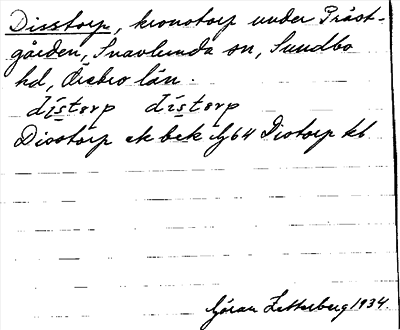 Disstorp, kronotorp under Präst-
gården, Snavlunda sn, Sundbo
hd, Örebro län.
dístorp dístorp
Disstorp ek bek G64 Distorp kb
Göran Zetterberg 1934